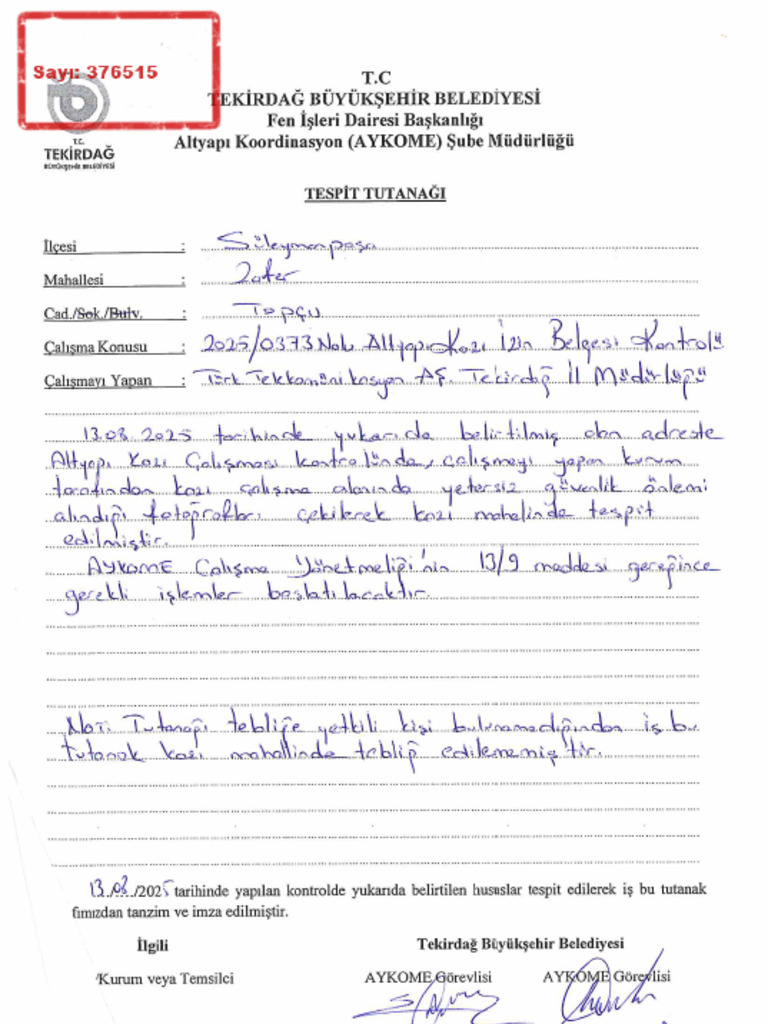 Sayı: 376515
T.C.
TEKİRDAĞ
BÜYÜKŞEHİR BELEDİYESİ
T.C
TEKİRDAĞ BÜYÜKŞEHİR BELEDİYESİ
Fen İşleri Dairesi Başkanlığı
Altyapı Koordinasyon (AYKOME) Şube Müdürlüğü
TESPİT TUTANAĞI
İlçesi : Süleymanpaşa
Mahallesi : Zafer
Cad./Sok./Bulv. : Topçu
Çalışma Konusu : 2025/0373 Nolu Altyapı Kazı İzin Belgesi Kontrolü
Çalışmayı Yapan : Türk Telekomünikasyon AŞ. Tekirdağ İl Müdürlüğü
13.08.2025 tarihinde yukarıda belirtilmiş olan adreste
Altyapı Kazı Çalışması kontrolünde, çalışmayı yapan kurum
tarafından kazı çalışma alanında yetersiz güvenlik önlemi
alındığı fotoğrafları çekilerek kazı mahalinde tespit
edilmiştir.
AYKOME Çalışma Yönetmeliği'nin 13/9 maddesi gereğince
gerekli işlemler başlatılacaktır.
Not: Tutanağı tebliğe yetkili kişi bulunamadığından iş bu
tutanak kazı mahallinde tebliğ edilememiştir.
13.08/2025 tarihinde yapılan kontrolde yukarıda belirtilen hususlar tespit edilerek iş bu tutanak
fımızdan tanzim ve imza edilmiştir.
İlgili Tekirdağ Büyükşehir Belediyesi
Kurum veya Temsilci AYKOME Görevlisi AYKOME Görevlisi